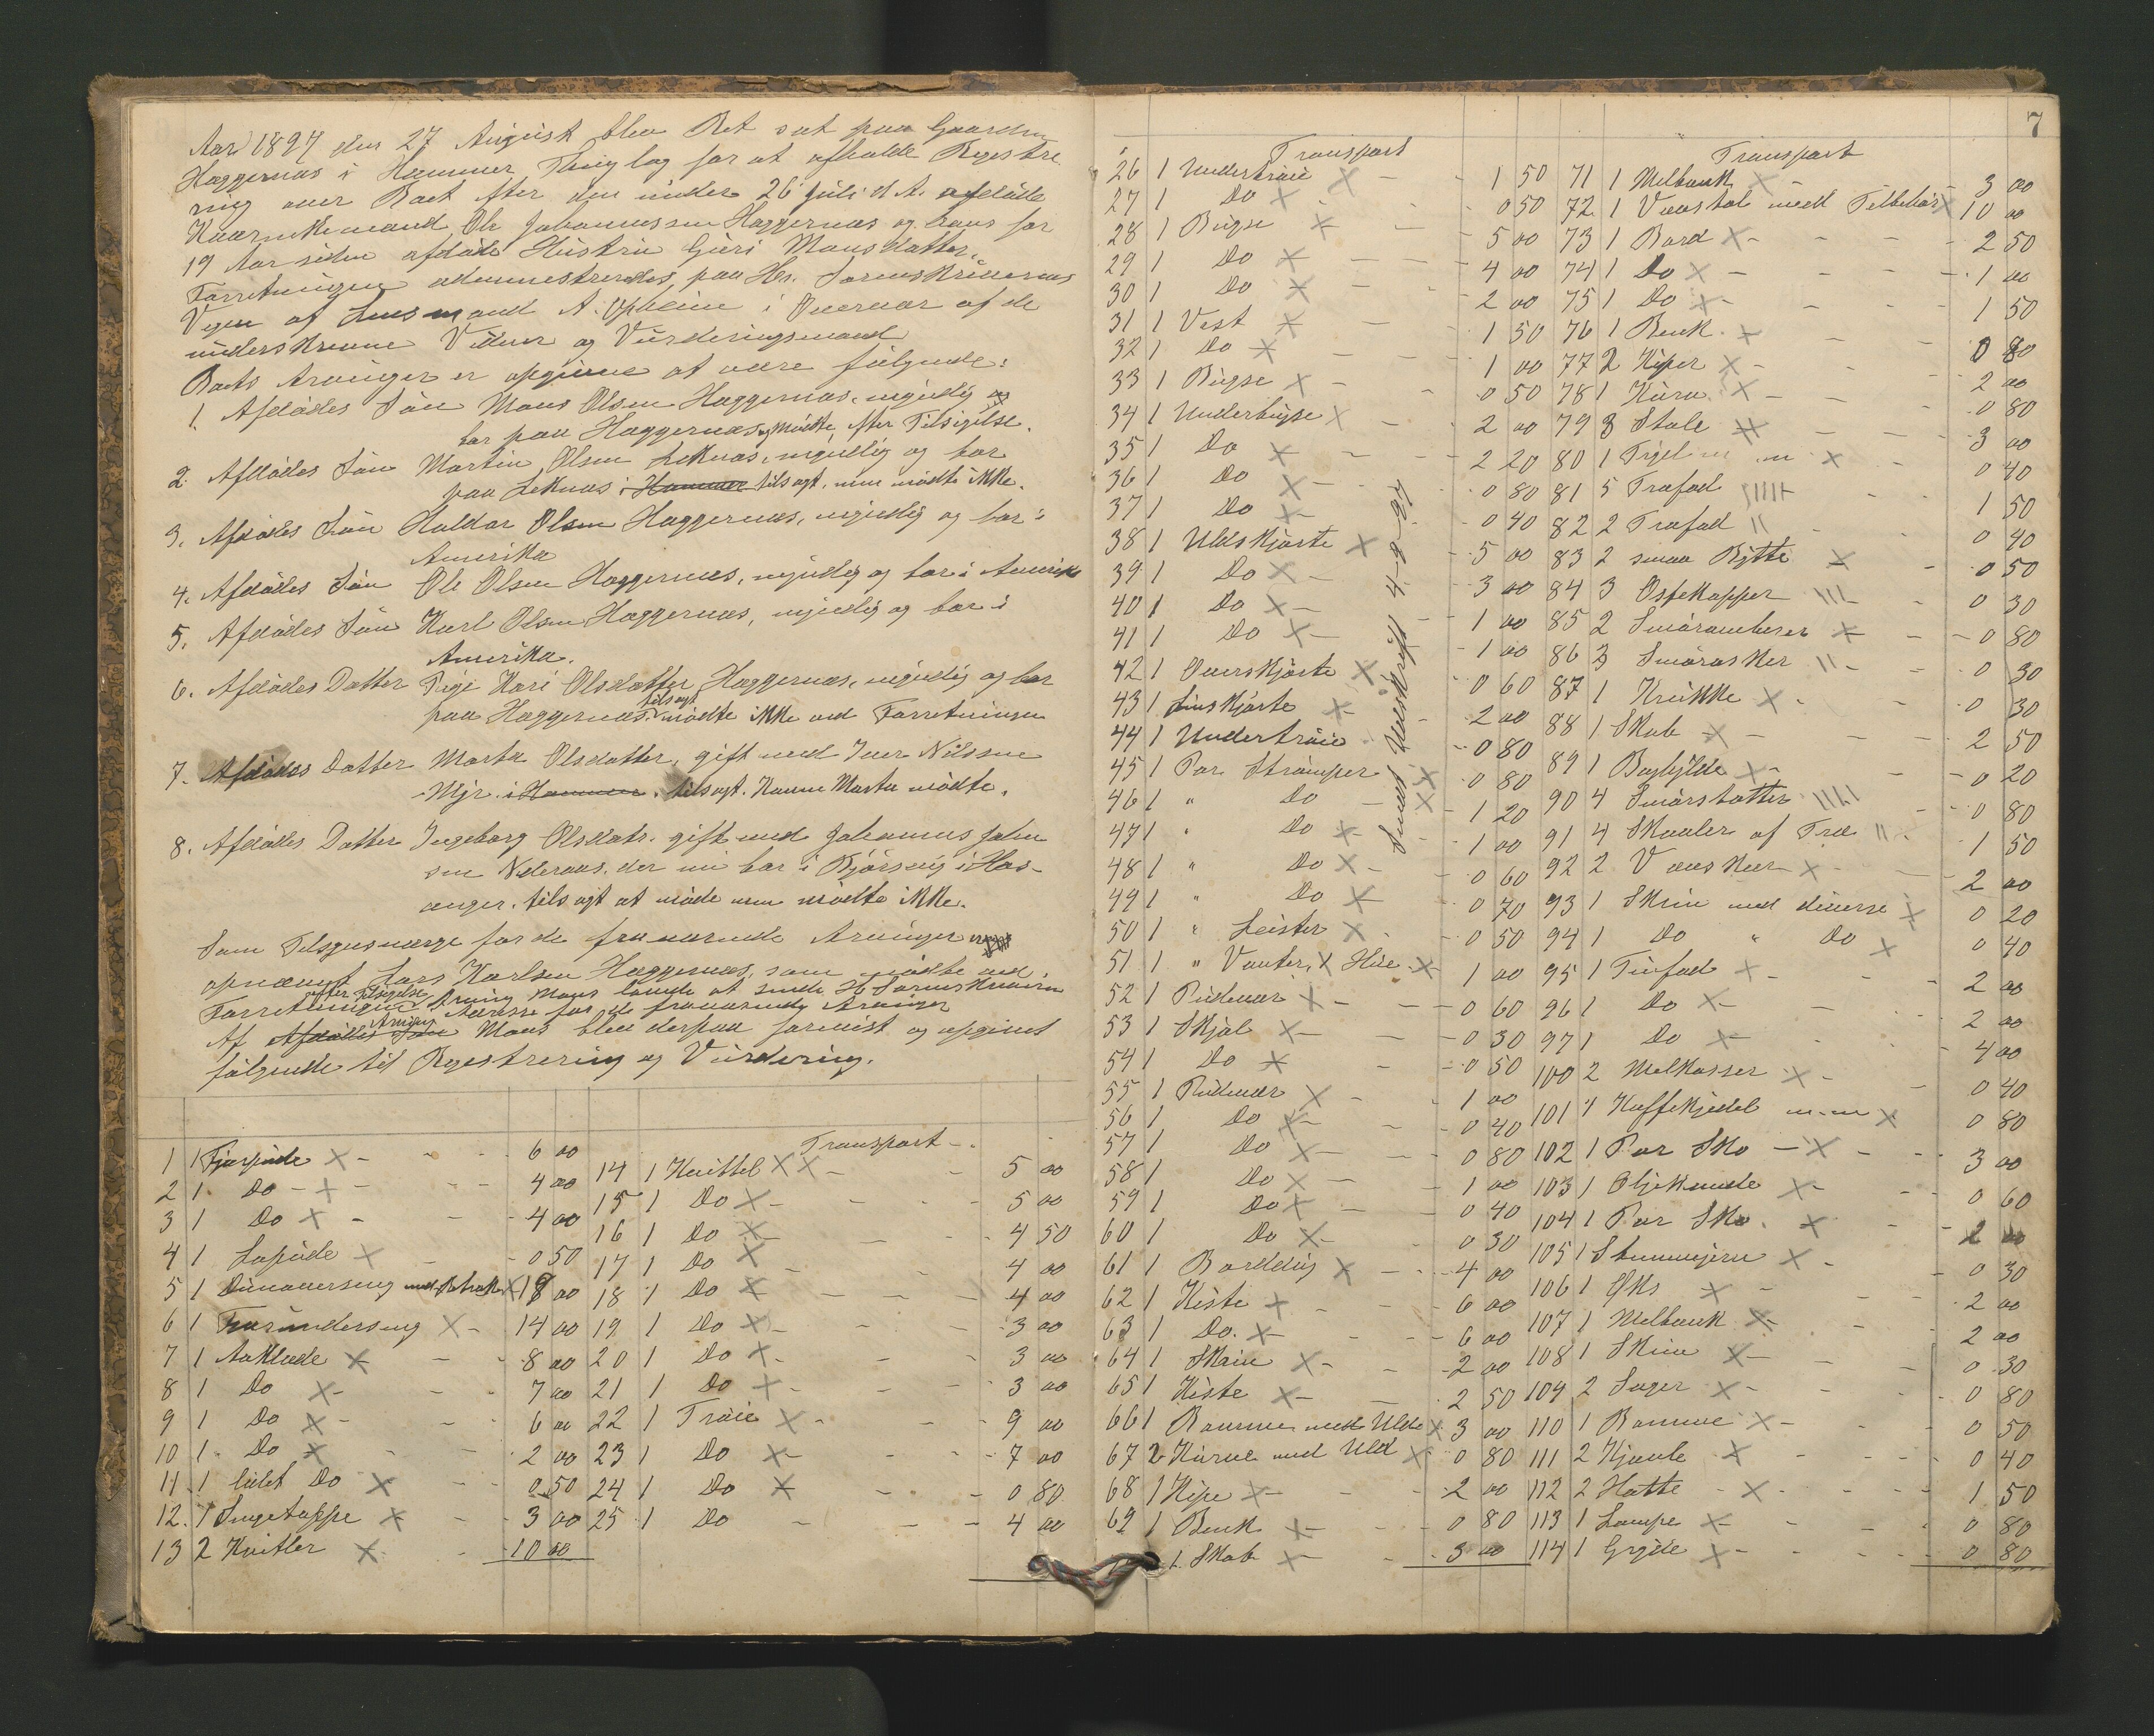 Aar 1897 den 27 August blev Ret sat paa Gaarden
Haggernæs i Hammer Thinglag for at afholde Regestre
ring over Boet efter den under 26 juli d. A. afdøde
Kaarmkemand Ole Johannessen Haggernæs og hans for
19 Aar siden afdøde Hustru Guri Monsdatter.
Forretningen adminestreredes paa Hr. Sorenskriverens
Vegne af Lensmand A. Opheim i Overvær af de
underskrevne Vidner og Vurderingsmænd
Boets Arvinger er opgivne at være følgende:
1. Afdødes Søn Mons Olsen Haggernæs, myndig og
bor paa Haggernæs, mødte efter Tilsigelse.
2. Afdødes Søn Martin Olsen Leknæs, myndig og bor
paa Leknæs i Hammer tilsagt, men mødte ikke.
3. Afdødes Søn Haldor Olsen Haggernæs, myndig og bor i
Amerika
4. Afdødes Søn Ole Olsen Haggernæs, myndig og bor i Amerika
5. Afdødes Søn Karl Olsen Haggernæs, myndig og bor i
Amerika.
6. Afdødes Datter Pige Kari Olsdatter Haggernæs, myndig og bor
paa Haggernæs. tilsagt mødte ikke ved Forretningen
7. Afdødes Datter Marta Olsdatter, gift med Iver Nilssen
Myr i Hammer. tilsagt. Konen Marta mødte.
8. Afdødes Datter Ingeborg Olsdatr. gift med Johannes Johan
sen Nederaas. der nu bor i Bjørsvig i Hos-
anger. tilsagt at møde men mødte ikke.
Som Tilsynsværge for de fraværende Arvinger
opnævnt Lars Karlsen Haggernæs, som mødte ved
Forretningen efter Tilsigelse. Arving Mons lovede at sende Hr Sorenskriveren
Adresse for de fraværende Arvinger
Af Afdødes Søn Arving Mons blev derpaa forevist og opgivet
følgende til Regestrering og Vurdering.
1 1 Fjærpude X - - - 6 00
2 1 Do - X - - - 4 00
3 1 Do X - - - 4 00
4 1 Lapude X - 0 50
5 1 Dunoverseng med Betræk X 18 00
6 1 Fjærunderseng X - 14 00
7 1 Aaklæde X - - 8 00
8 1 Do X - - - 7 00
9 1 Do X - - - 6 00
10 1 Do X - - 2 00
11 1 lidet Do X - 0 50
12 1 Sengetæppe X - - 3 00
13 2 Kvitler X - 10 00
Transport -
14 1 Kvittel X X - - 5 00
15 1 Do X - - - 5 00
16 1 Do X - 4 50
17 1 Do X - - 4 00
18 1 Do X - - - 4 00
19 1 Do X - - 3 00
20 1 Do X - - - 3 00
21 1 Do X - - - 3 00
22 1 Trøie X - - 9 00
23 1 Do X - - - 7 00
24 1 Do X - - 0 80
25 1 Do - - - 4 00
7
Transport
26 1 Undertrøie X - - 1 50
27 1 Do X - - 0 50
28 1 Bugse X - - 5 00
29 1 Do X - - 4 00
30 1 Do X - - 2 00
31 1 Vest X - - 1 50
32 1 Do X - - 1 00
33 1 Bugse X - - 0 50
34 1 Underbugse X - 2 00
35 1 Do X - - 2 20
36 1 Do X - 0 80
37 1 Do X - 0 40
38 1 Uldskjørte X - 5 00
39 1 Do X - 3 00
40 1 Do X - 1 00
41 1 Do X - 1 00
42 1 Overskjørte X 0 60
43 1 Linskjørte X - 2 00
44 1 Undertrøie - 0 80
45 1 Par Strømper X 0 80
46 1 " Do - X 1 20
47 1 " Do X - 1 00
48 1 " Do X - 0 60
49 1 " Do X 0 70
50 1 " Leister X - 0 50
51 1 " Vanter, 1 Hue X 1 00
52 1 Pudevar X - - 0 60
53 1 Skjal X - - 0 30
54 1 Do X - 0 50
55 1 Pudevar X - - 1 00
56 1 Do X - 0 40
57 1 Do X - - 0 80
58 1 Do X - 1 00
59 1 Do X - - 0 40
60 1 Do X - 0 30
61 1 Borddug X - - 4 00
62 1 Kiste X - - 6 00
63 1 Do. X - - 6 00
64 1 Skrin X - - 2 00
65 1 Kiste X - 2 50
66 1 Bomme med Uld X 3 00
67 2 Kurve med Uld X 0 80
68 1 Kipe X - - 2 00
69 1 Benk X - - 0 80
1 Skab X - - 3 00
Smat Udskrift 4-9-97
Transport
71 1 Melbenk X 3 00
72 1 Vævstol med Tilbehør X 10 00
73 1 Bord X - - - 2 50
74 1 Do X - - - 1 00
75 1 Do X - - 1 50
76 1 Benk X - 0 80
77 2 Kiper X - - 2 00
78 1 Kurv X - 0 80
79 8 Stole X - - 3 00
80 1 X - 0 40
81 5 Træfad - - 1 50
82 2 Træfad - 0 40
83 2 smaa Bytte X - 0 50
84 3 Ostekopper - 0 30
85 2 Smørambarer X - 0 80
86 3 Smørasker - 0 30
87 1 Krukke X - 0 30
88 1 Skab X - - 2 50
89 1 Boghylde X - - 0 20
90 4 Smørstøtter 0 80
91 4 Skaaler af Træ 1 50
92 2 Vævskeer X - 2 00
93 1 Skrin med diverse X 0 20
94 1 Do " Do X 0 40
95 1 Tinfad X - - 2 00
96 1 Do X - - 2 00
97 1 Do X - - 4 00
100 2 Melkasser X - - 0 40
101 1 Kaffekjedel m.m X 0 80
102 1 Par Sko - X - - 3 00
103 1 Oljekande X - - 0 60
104 1 Par Sko. X - - 2 00
105 1 Stemmejern X - - 0 30
106 1 Øks X - - 2 00
107 1 Melbenk X - - 2 00
108 1 Skrin X - - 0 30
109 2 Sager X - - 0 80
110 1 Bomme X - - 0 50
111 2 Kjævle X - - 0 40
112 2 Hatte - X - - 1 50
113 1 Lampe X - - 0 80
114 1 Gryde X - - 0 80